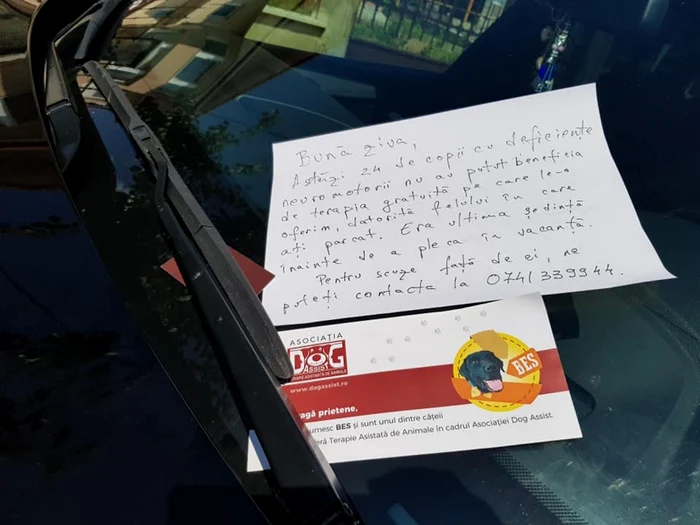 Bună ziua,
Astăzi 24 de copii cu deficiențe
neuromotorii nu au putut beneficia
de terapia gratuită pe care le-o
oferim, datorită felului în care
ați parcat. Era ultima ședință
înainte de a pleca în vacanță.
Pentru scuze față de ei, ne
puteți contacta la 0741339944.
ASOCIAȚIA
DOG
ASSIST
ASISTATĂ DE ANIMALE
www.dogassist.ro
BES
agă prietene,
umesc BES și sunt unul dintre câțeii
ară Terapie Asistată de Animale în cadrul Asociației Dog Assist.